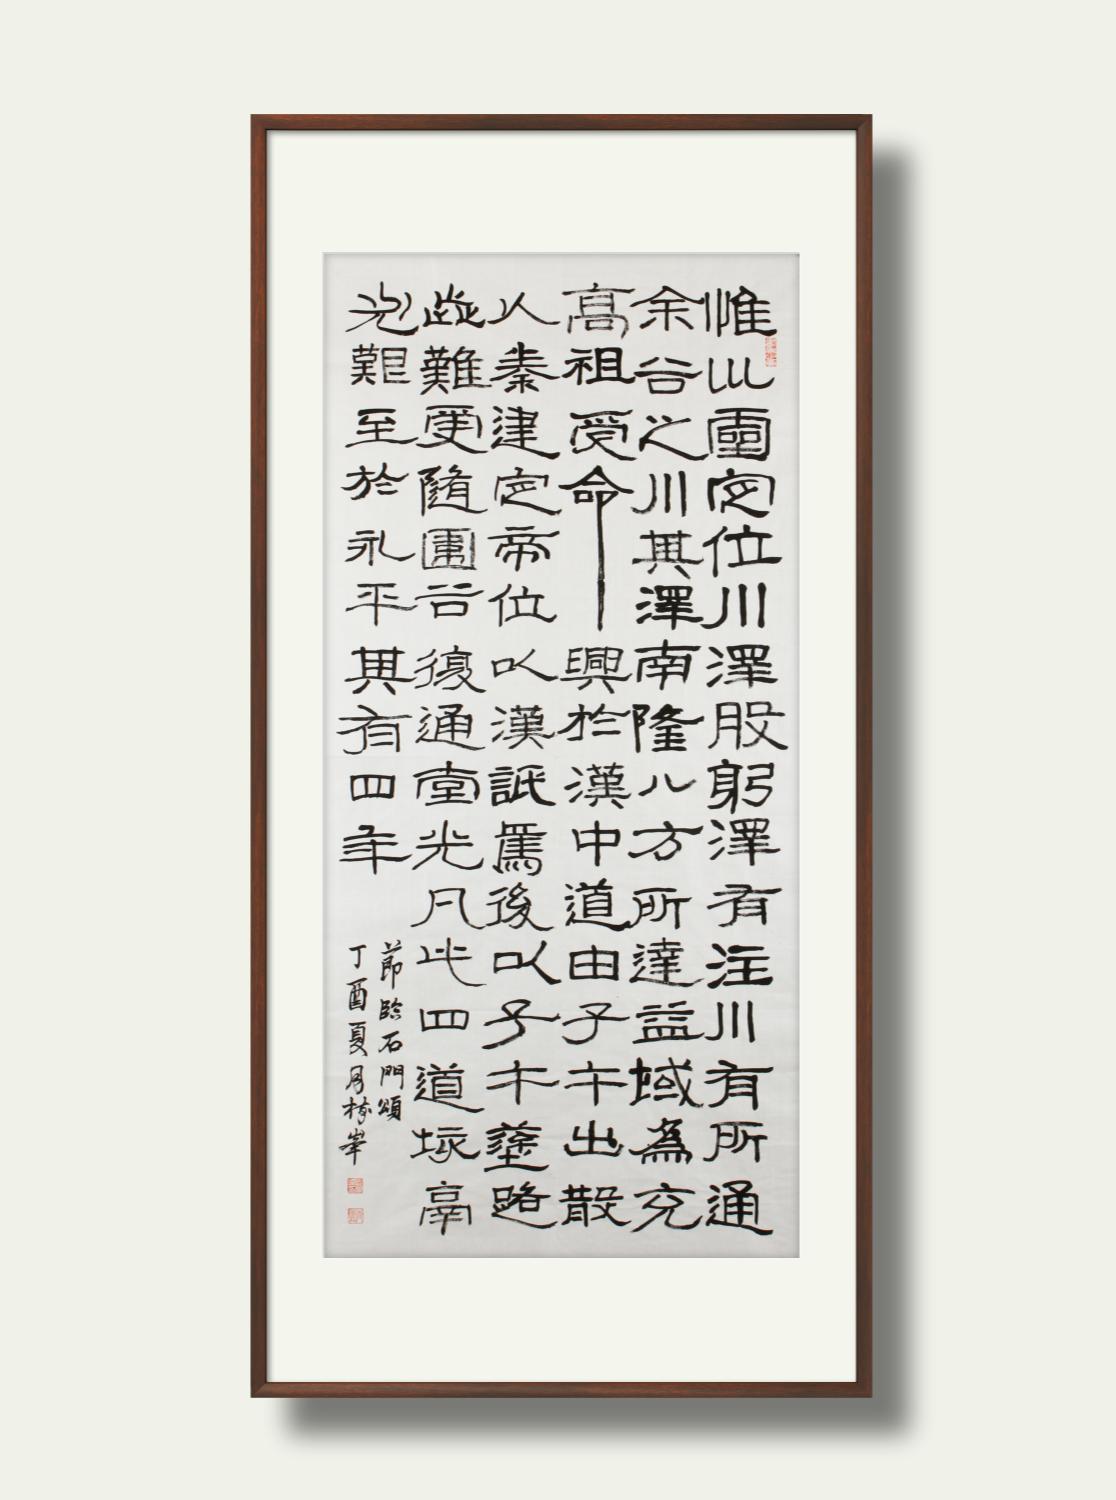 惟巛靈定位川澤股躬澤有注川有所通
余谷之川其澤南隆八方所達益域為充
高祖受命興於漢中道由子午出散
入秦建定帝位以漢詆焉後以子午塗路
歰難更隨圍谷復通堂光凡此四道垓鬲
尤艱至於永平其有四年
節臨石門頌
丁酉夏月峯